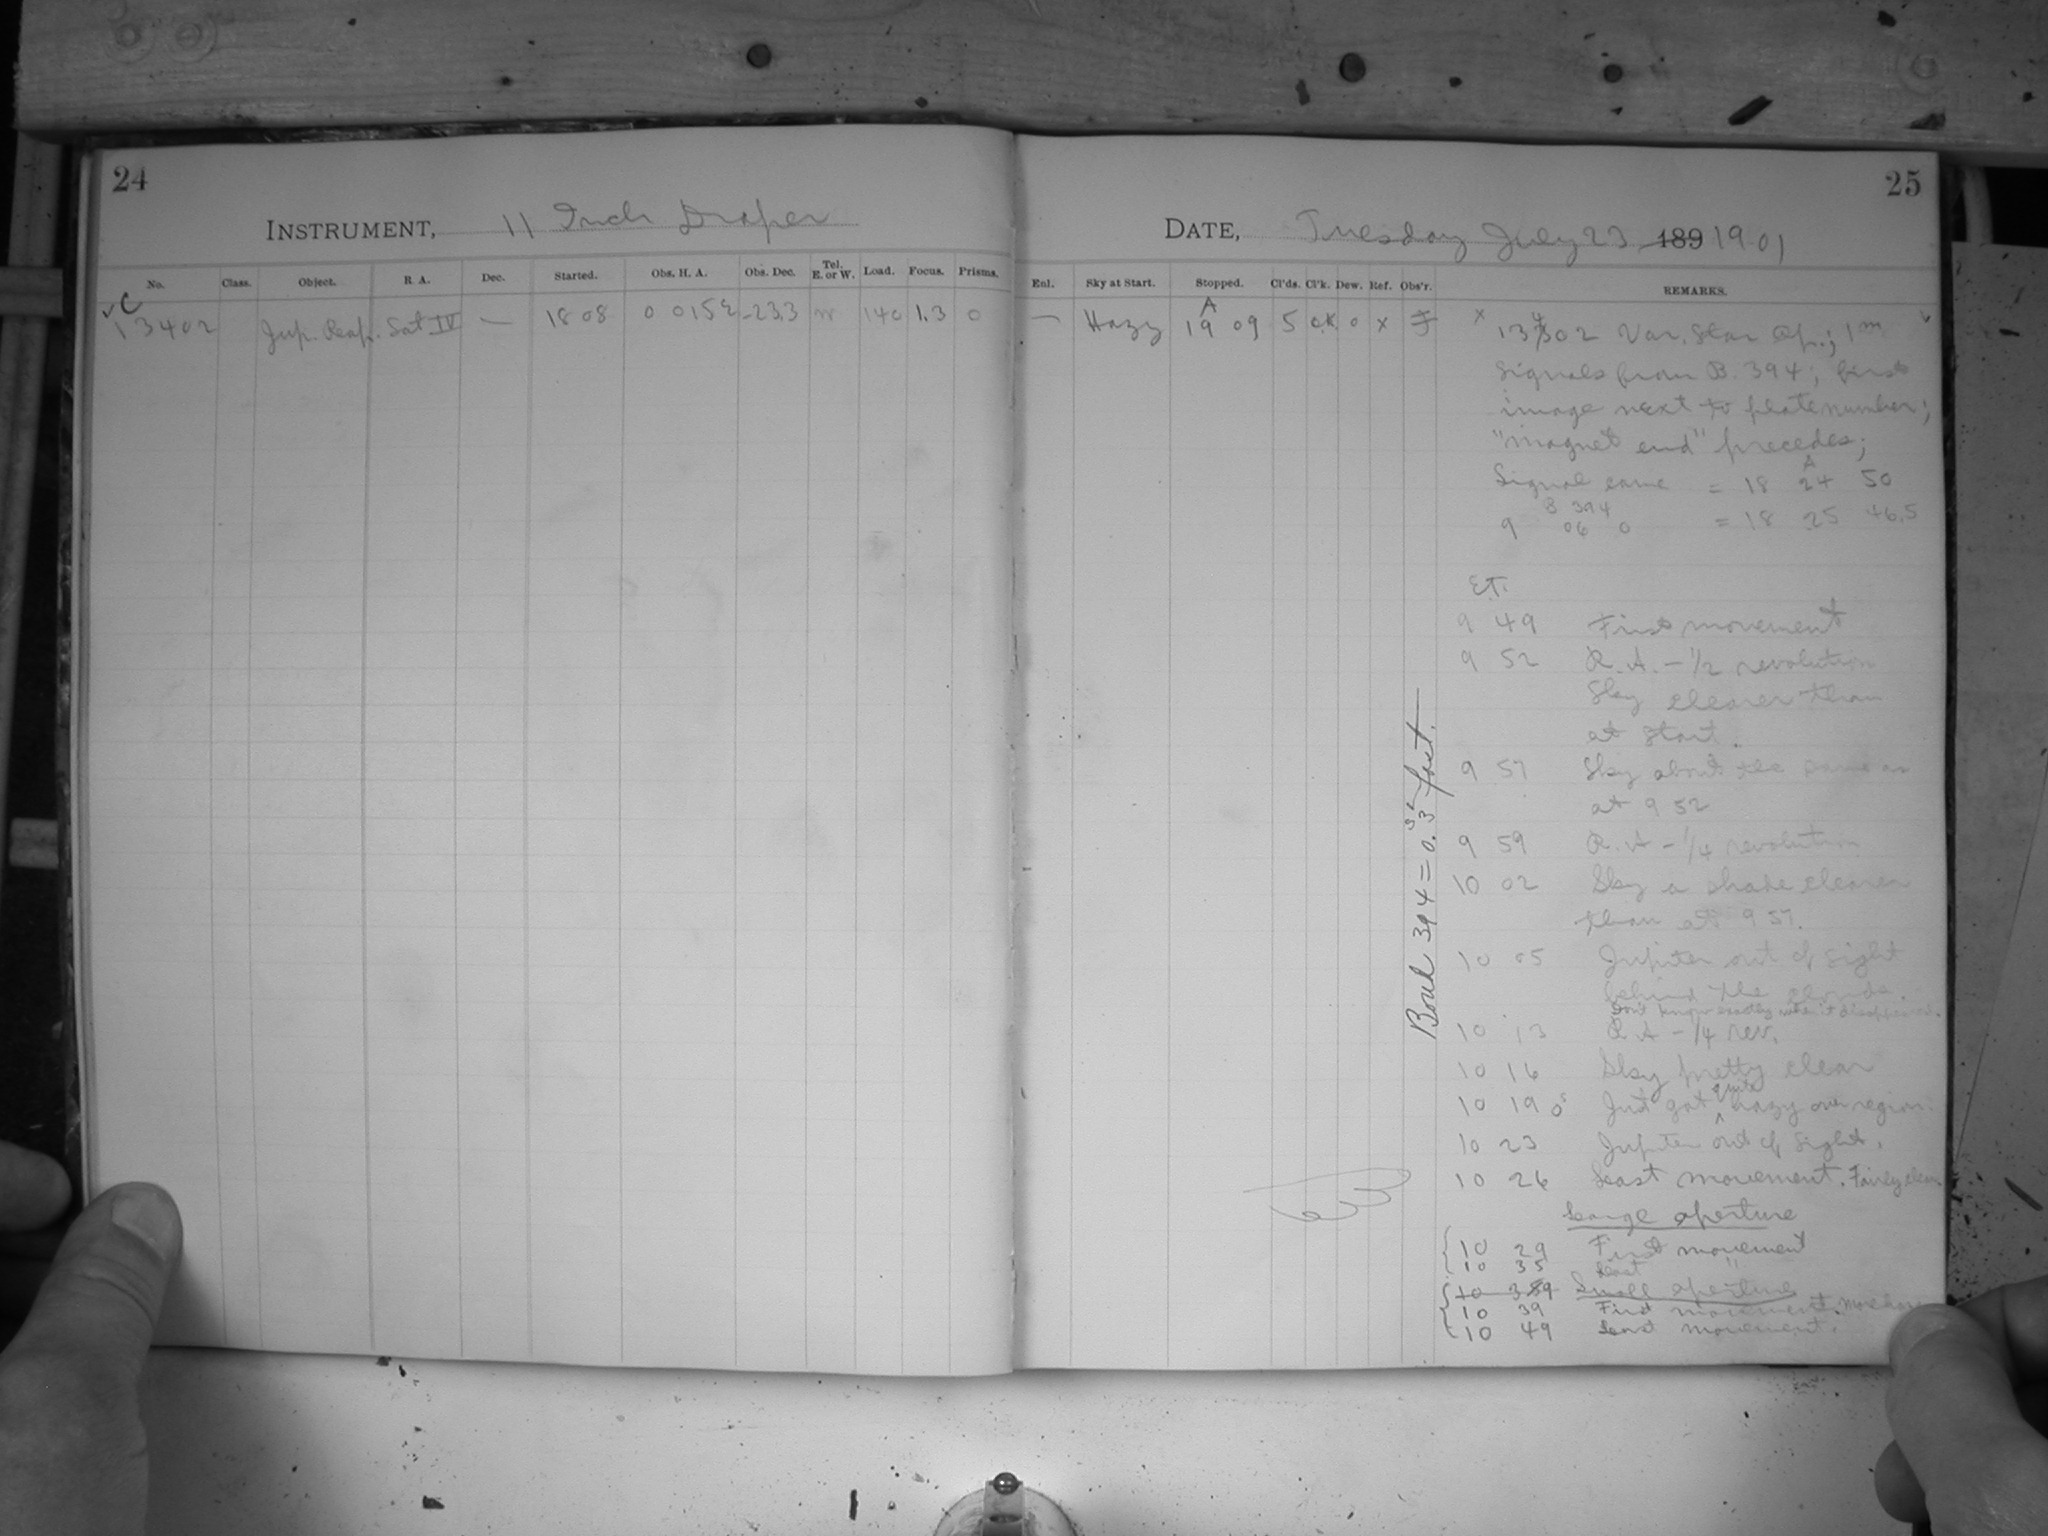 24
INSTRUMENT, 11 Inch Draper
No. Class. Object. R. A. Dec. Started. Obs. H. A. Obs. Dec. Tel. E. or W. Load. Focus. Prisms.
C
13402 Jup. Reap. Sat IV — 18 08 0 015E -23.3 W 140 1.3 0
25
DATE, Tuesday July 23 189 1901
Enl. Sky at Start. Stopped. Cl'ds. Cl'k. Dew. Ref. Obs'r. REMARKS.
— Hazy 19 09 5 ok 0 x
13402 Var. Star Ap.; 1m
signals from B. 394; first
image next to plate number;
"magnet end" precedes;
Signal came = 18 24 50
B 394
9 06 0 = 18 25 46.5
E.T.
9 49 First movement
9 52 R.A. – 1/2 revolution
Sky clearer than
at start.
9 57 Sky about the same as
at 9 52
9 59 R.A – 1/4 revolution
10 02 Sky a shade clearer
than at 9 57.
10 05 Jupiter out of sight
behind the clouds.
Don't know exactly when it disappeared.
10 13 R.A – 1/4 rev.
10 16 Sky pretty clear
10 19 0s Just got quite hazy over region.
10 23 Jupiter out of sight.
10 26 Last movement. Fairly clear
Large aperture
10 29 First movement
10 35 Last "
Small aperture
10 39 First movement.
10 49 Last movement.
Bond 394 = 0.3s fast.